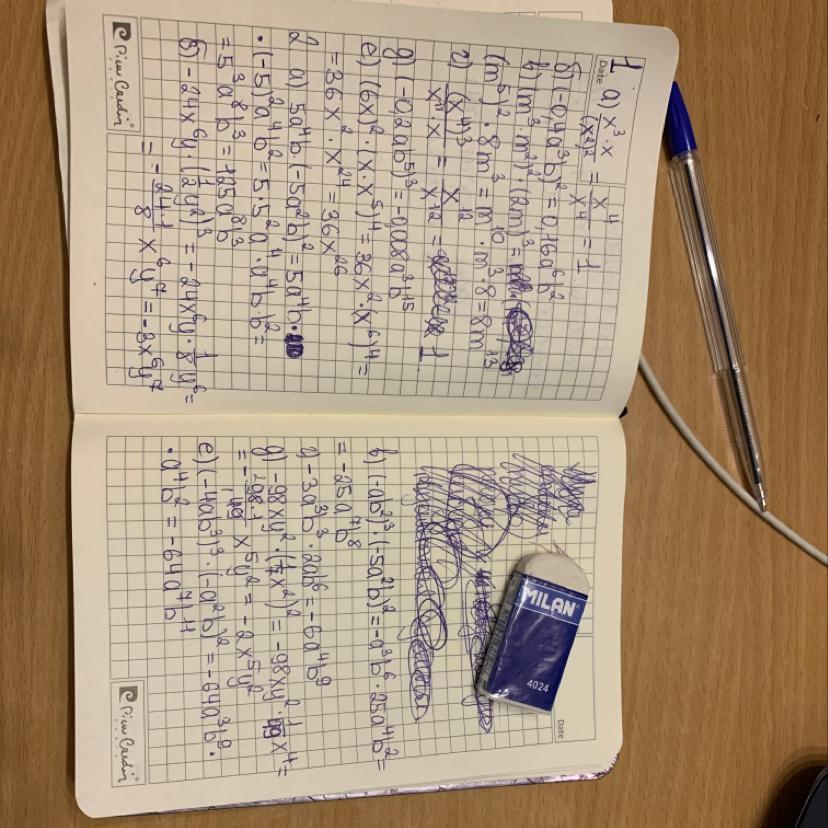 Date
1. а) x³·x/(x²)² = x⁴/x⁴ = 1
б) (-0,4a³b)² = 0,16a⁶b²
в) (m³·m²)²·(2m)³ =
(m⁵)²·8m³ = m¹⁰·m³·8 = 8m¹³
г) (x⁴)³/x¹¹·x = x¹²/x¹² = 1
д) (-0,2ab⁵)³ = -0,008a³b¹⁵
е) (6x)²·(x·x⁵)⁴ = 36x²·(x⁶)⁴ =
= 36x²·x²⁴ = 36x²⁶
2 а) 5a⁴b·(-5a²b)² = 5a⁴b·
·(-5)²a⁴b² = 5·5²a⁴·a⁴b·b² =
= 5³a⁸b³ = 125a⁸b³
б) -24x⁶y·(1/2y²)³ = -24x⁶y·1/8y⁶ =
= -24·1/8 x⁶y⁷ = -3x⁶y⁷
Pierre Cardin
Date
в) (-ab²)³·(-5a²b)² = -a³b⁶·25a⁴b² =
= -25a⁷b⁸
г) -3a³b³·2ab⁶ = -6a⁴b⁹
д) -98xy²·(1/7x²)² = -98xy²·1/49x⁴ =
= -98·1/49 x⁵y² = -2x⁵y²
е) (-4ab³)³·(-a²b)² = -64a³b⁹·
·a⁴b² = -64a⁷b¹¹
Pierre Cardin
MILAN
4024